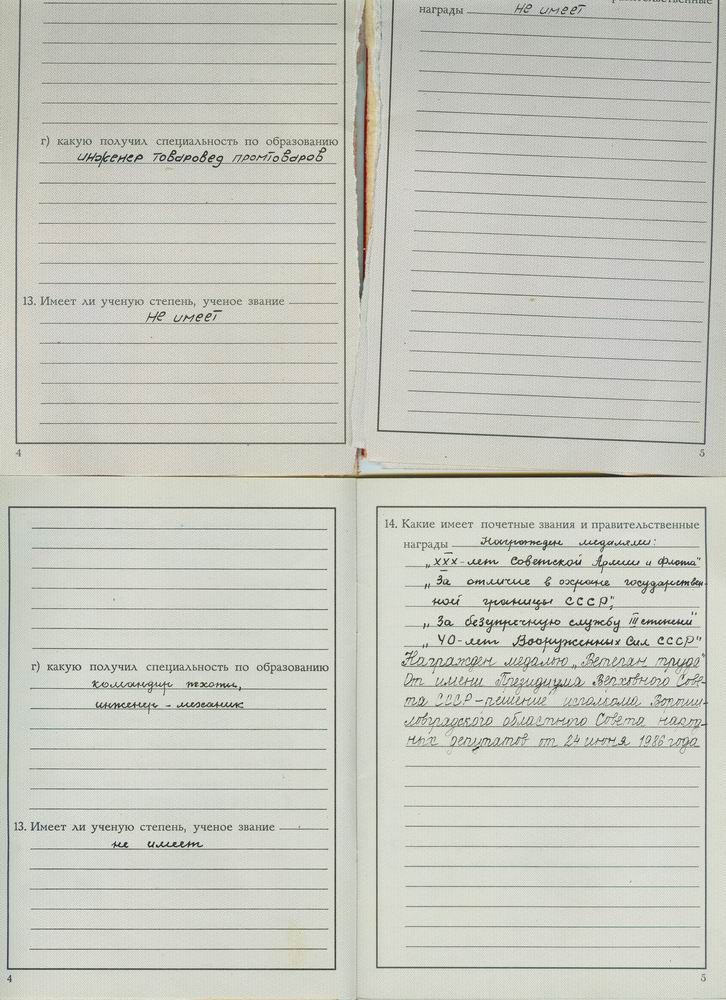 г) какую получил специальность по образованию
инженер товаровед промтоваров
13. Имеет ли ученую степень, ученое звание
не имеет
4
награды не имеет
5
г) какую получил специальность по образованию
командир пехоты,
инженер - механик
13. Имеет ли ученую степень, ученое звание
не имеет
4
14. Какие имеет почетные звания и правительственные
награды Награжден медалями:
„XXX-лет Советской Армии и флота"
„За отличие в охране государствен-
ной границы СССР",
„За безупречную службу III степени"
„40-лет Вооруженных Сил СССР"
Награжден медалью „Ветеран труда"
От имени Президиума Верховного Сове-
та СССР-решение исполкома Вороши-
ловградского областного Совета народ-
ных депутатов от 24 июня 1986 года
5